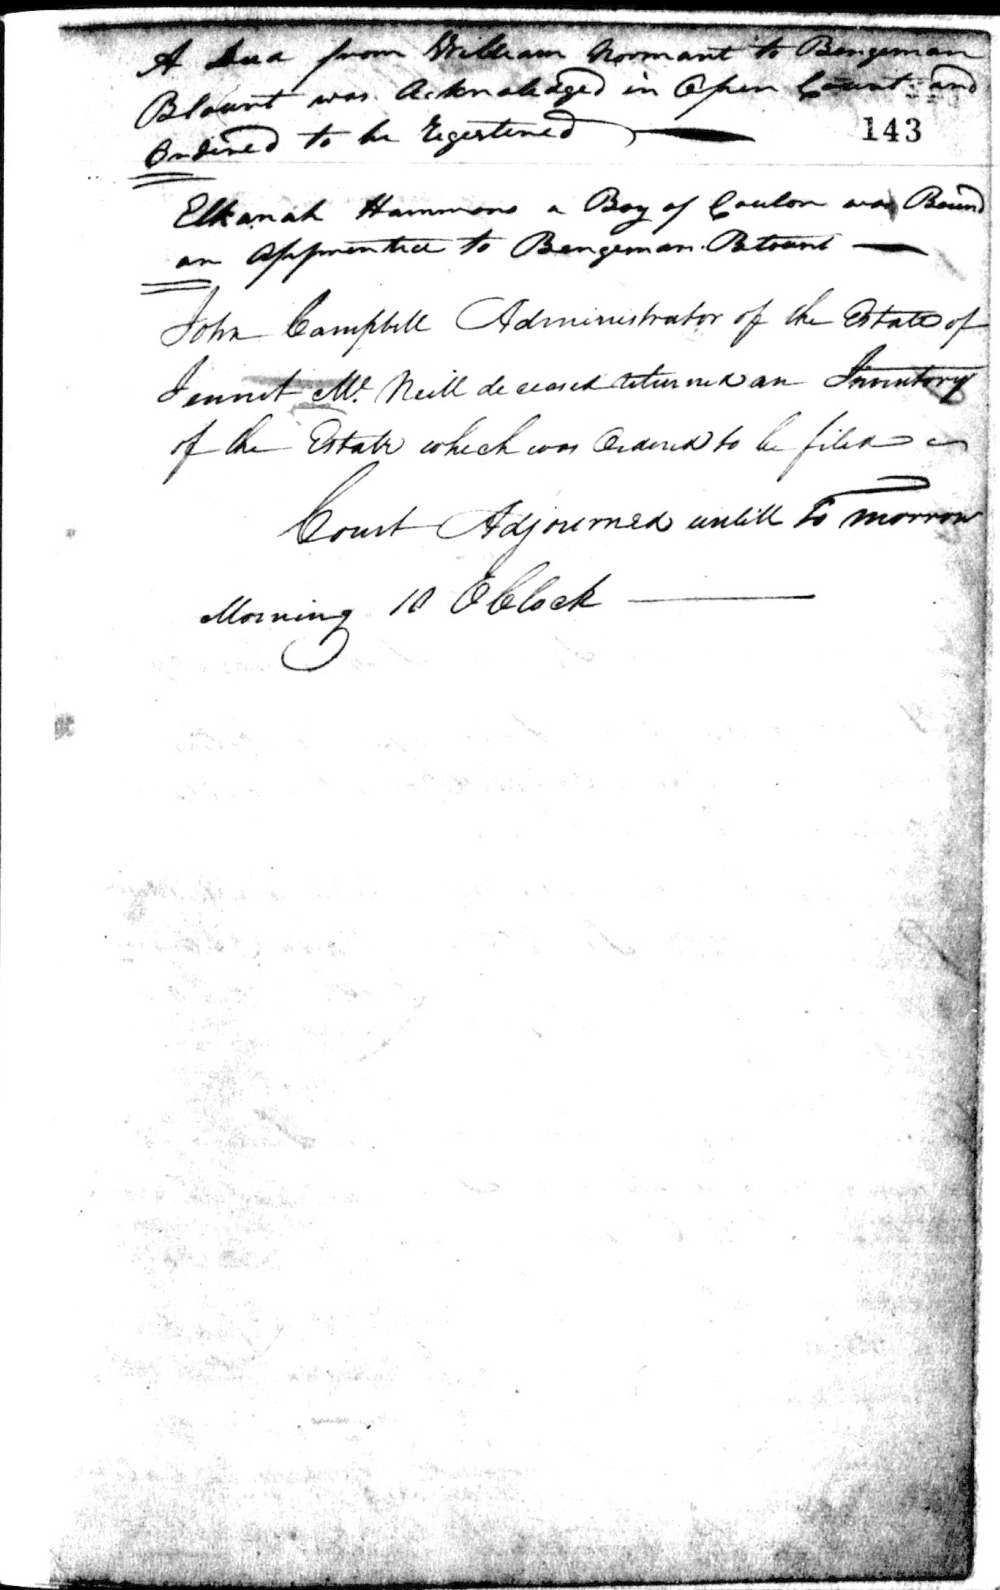 A Deed from William Normant to Bengeman
Blount was Acknoledged in Open Count and
Ordered to be Regestered
143
Elkanah Hammons a Boy of Coulor was Bound
an Apprentice to Bengeman Blount
John Campbell Administrator of the Estate of
Jennet Mc Neill deceased returned an Inventory
of the Estate which was Ordered to be filed
Court Adjourned untill To morrow
Morning 10 OClock